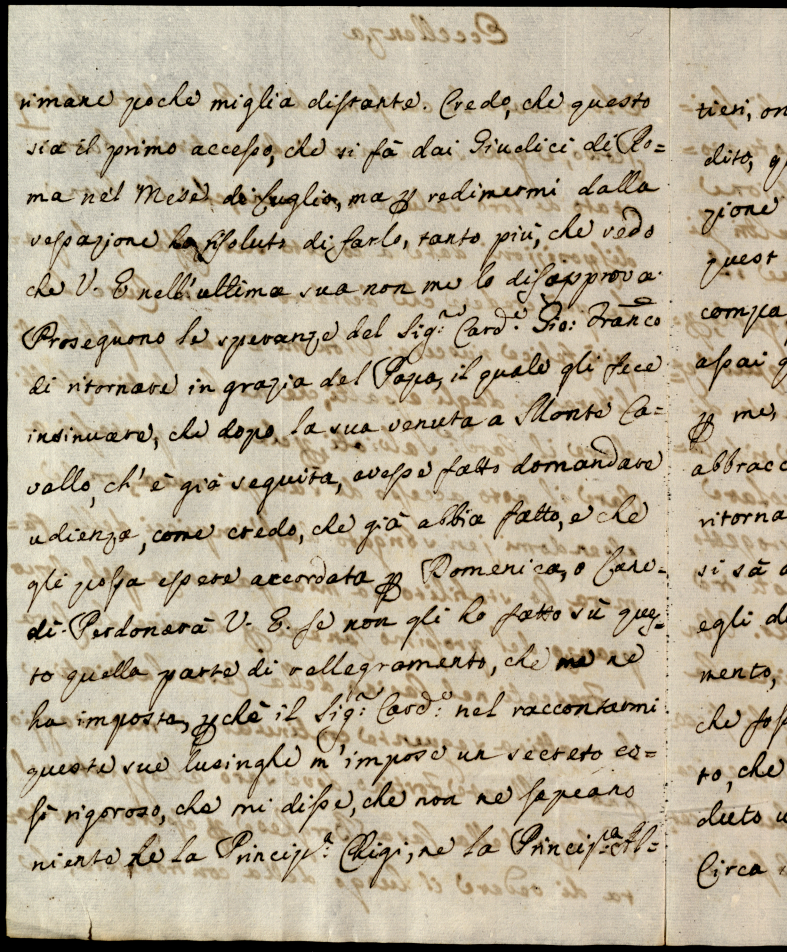 rimane poche miglia distante. Credo, che questo
sia il primo accesso, che si fà dai Giudici di Ro=
ma nel Mese di Luglio, ma ꝑ redimermi dalla
vessazione ho risoluto di farlo, tanto più, che vedo
che V. E nell'ultima sua non me lo disapprova.
Proseguono le speranze del Sig.r Card.e Gio: Fran̄co
di ritornare in grazia del Papa, il quale gli fece
insinuare, che dopo la sua venuta a Monte Ca=
vallo, ch'è già seguita, avesse fatto domandare
udienza, come credo, che già abbia fatto, e che
gli possa essere accordata ꝑ Domenica, o Lune=
dì. Perdonarà V. E. se non gli ho fatto sù ques=
to quella parte di rallegramento, che me ne
ha imposta, ꝑchè il Sig.r Card.e nel raccontarmi
queste sue lusinghe m'impose un secreto co=
sì rigoroso, che mi disse, che non ne sapeano
niente ne la Princip.a Chigi, ne la Princip.a Al=
tieri, on
dito, q
zione
quest
compa
assai q
ꝑ me,
abbracc
ritorna
si sà
egli di
mento,
che fos
to, che
duto u
Circa
Eccellenza